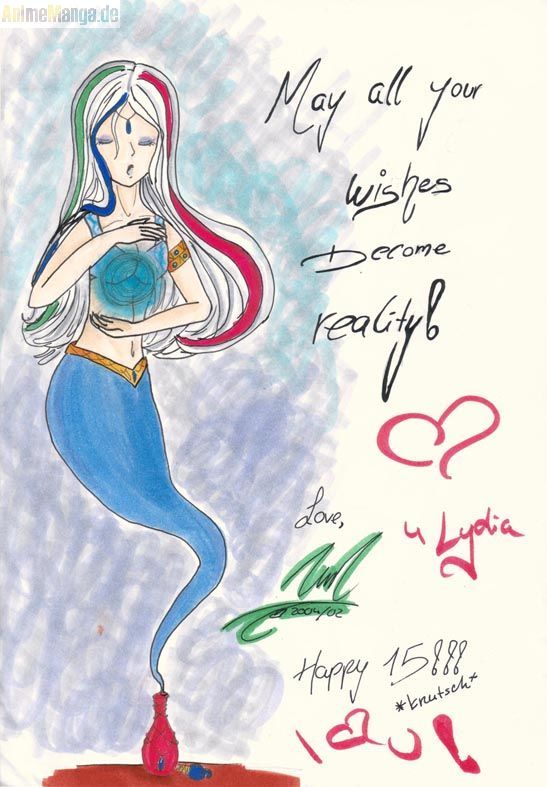 AnimeManga.de
May all your
wishes
Become
reality!
♡
u Lydia
Love,
2004/02
Happy 15!!!
*knutsch*
I ♡ u!